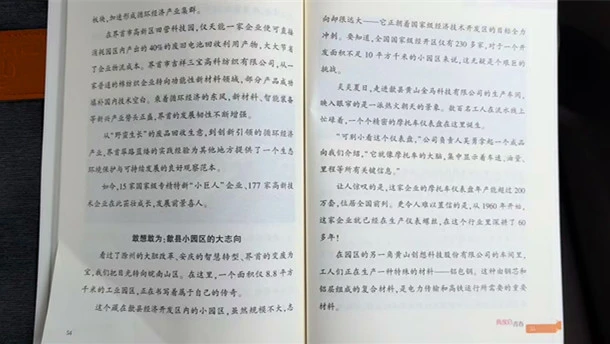 板块,加速形成循环经济产业集群。
在界首市高新区田营科技园,仅天能一家企业便可直接
消耗园区内产出的40%的废旧电池回收利用产物,大大节省
了企业物流成本。界首市吉祥三宝高科纺织有限公司,从一
家普通的棉纺织企业转向功能性新材料领域,部分产品成功
填补国内技术空白。乘着循环经济的东风,新材料、智能装备
等新兴产业势头正盛,界首的发展韧性不断增强。
从“野蛮生长”的废品回收生意,到创新引领的循环经济
产业,界首筚路蓝缕的实践经验为其他地方提供了一个生态
环境保护与可持续发展的良好观察范本。
如今,15家国家级专精特新“小巨人”企业、177家高新技
术企业在此茁壮成长,发展前景喜人。
敢想敢为:歙县小园区的大志向
看过了滁州的大胆改革、安庆的智慧转型、界首的变废为
宝,我们把目光转向皖南山区。在这里,一个面积仅8.8平方
千米的工业园区,正在书写着属于自己的传奇。
这个藏在歙县经济开发区内的小园区,虽然规模不大,志
54
向却很远大——它正朝着国家级经济技术开发区的目标全力
冲刺。要知道,全国国家级经开区仅有230多家,对于一个开
发面积不足10平方千米的小园区来说,这无疑是个艰巨的
挑战。
炎炎夏日,走进歙县黄山金马科技有限公司的生产车间,
映入眼帘的是一派热火朝天的景象。数百名工人在流水线上
忙碌着,一个个精密的摩托车仪表盘在这里诞生。
“可别小看这个仪表盘,”公司负责人吴勇拿起一个成品
向我们介绍,“它就像摩托车的大脑,集中显示着车速、油量、
里程等所有关键信息。”
让人惊叹的是,这家企业的摩托车仪表盘年产能超过200
万套,位居全国前列。更令人难以置信的是,从1960年开始,
这家企业就已经在生产仪表螺丝,在这个行业里深耕了60
多年!
在园区的另一角黄山创想科技股份有限公司的车间里,
工人们正在生产一种特殊的材料——铝包钢。这种由钢芯和
铝层组成的复合材料,是电力传输和高铁运行所需要的重要
材料。